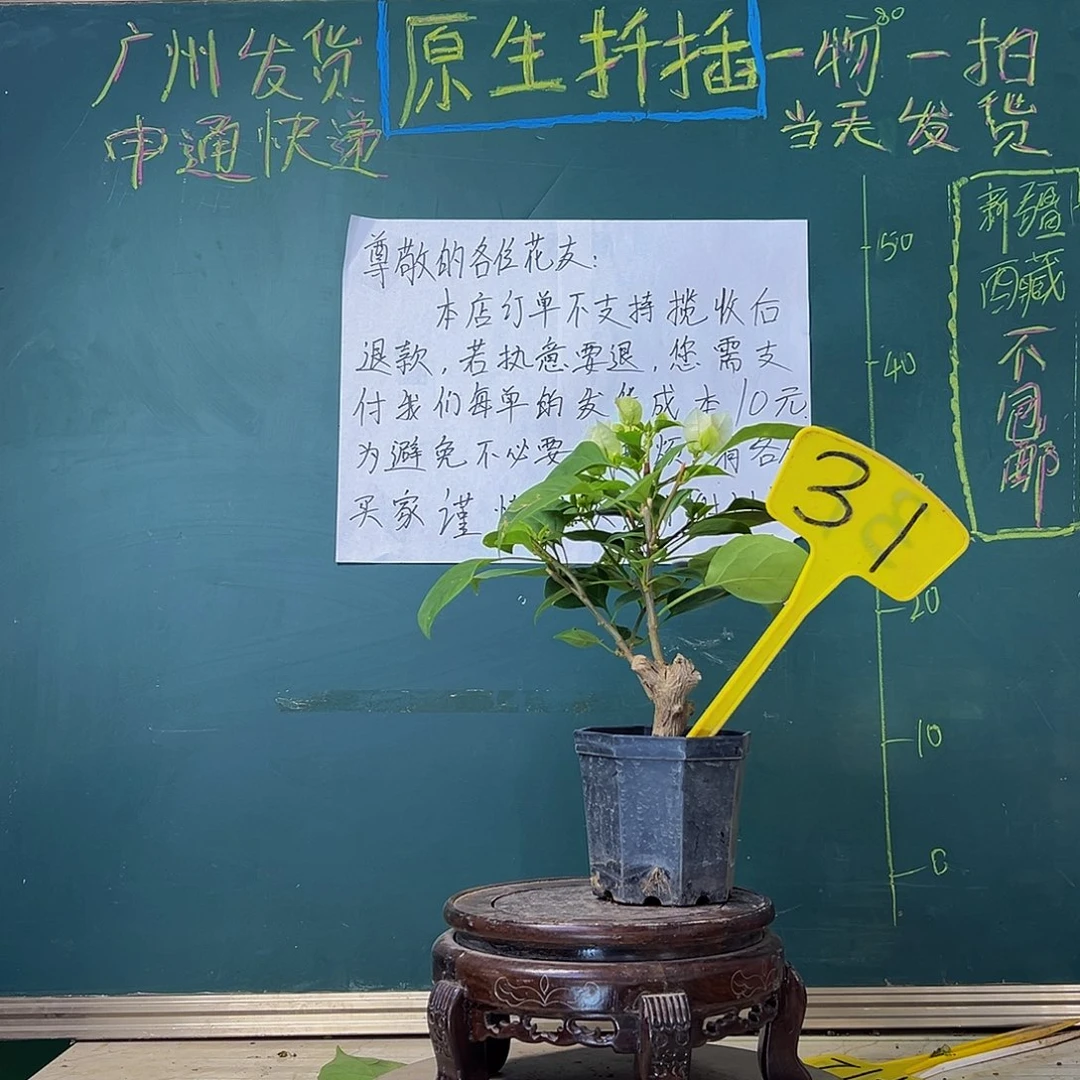 广州发货
申通快递
原生扦插
一物一拍
当天发货
新疆
西藏
不
包
邮
尊敬的各位花友:
本店订单不支持揽收后
退款,若执意要退,您需支
付我们每单的发货成本10元
为避免不必要
买家谨
31
50
40
20
10
0